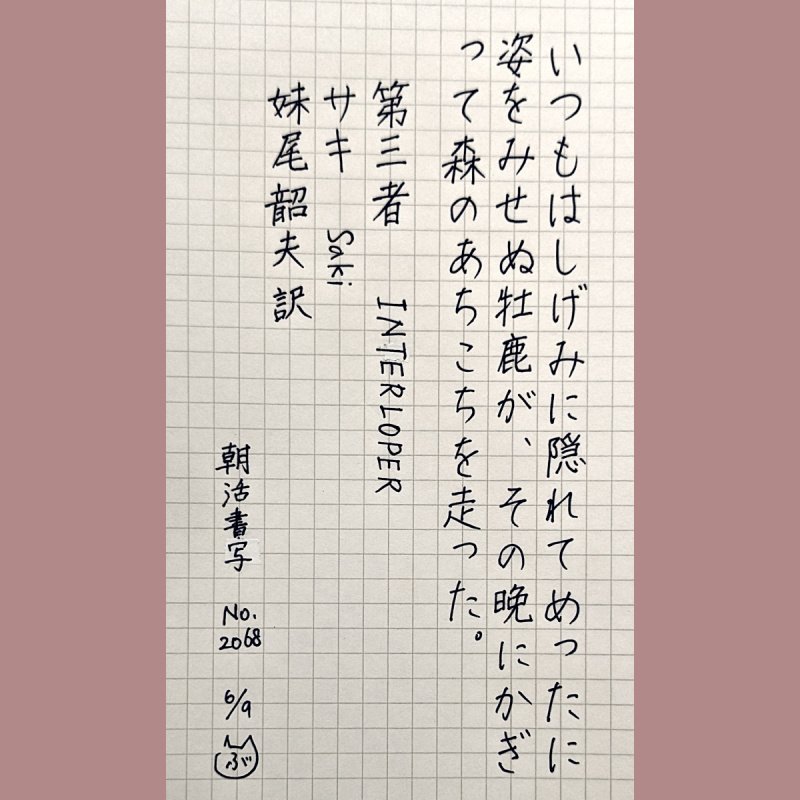 いつもはしげみに隠れてめったに
姿をみせぬ牡鹿が、その晩にかぎ
って森のあちこちを走った。
第三者 INTERLOPER
サキ Saki
妹尾韶夫訳
朝活書写 No. 2068 6/9 ぶ